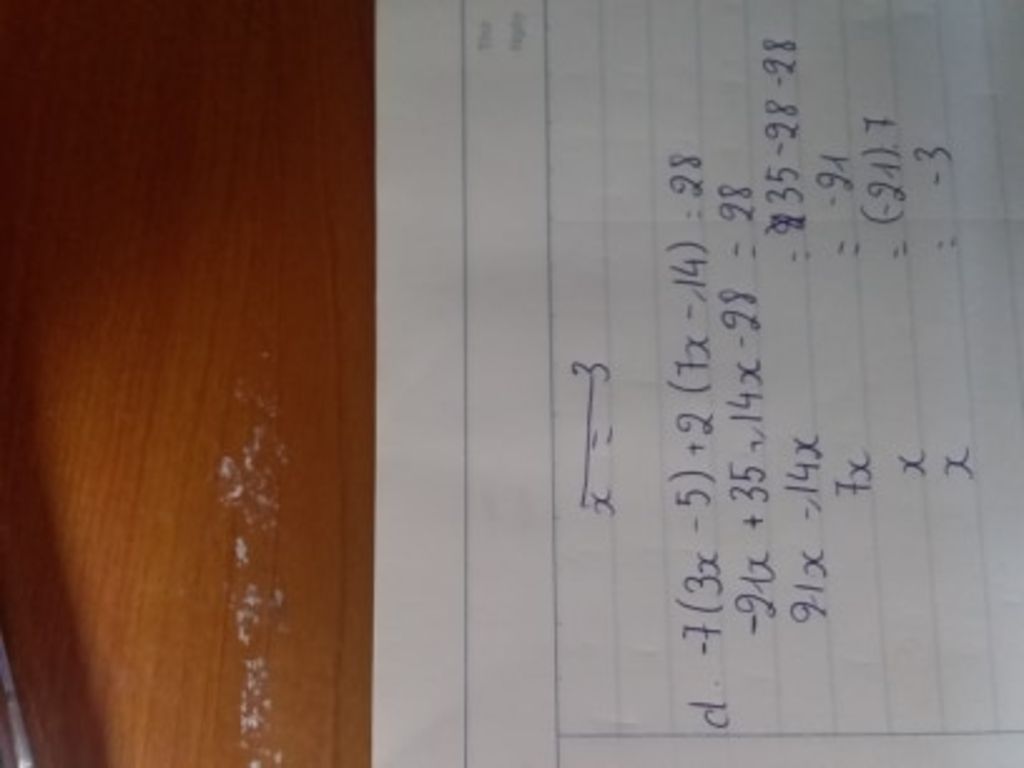 Thứ
Ngày
x = 3
d. -7(3x - 5) + 2(7x - 14) = 28
-21x + 35 + 14x - 28 = 28
21x - 14x = 35 - 28 - 28
7x = -21
x = (-21):7
x = -3